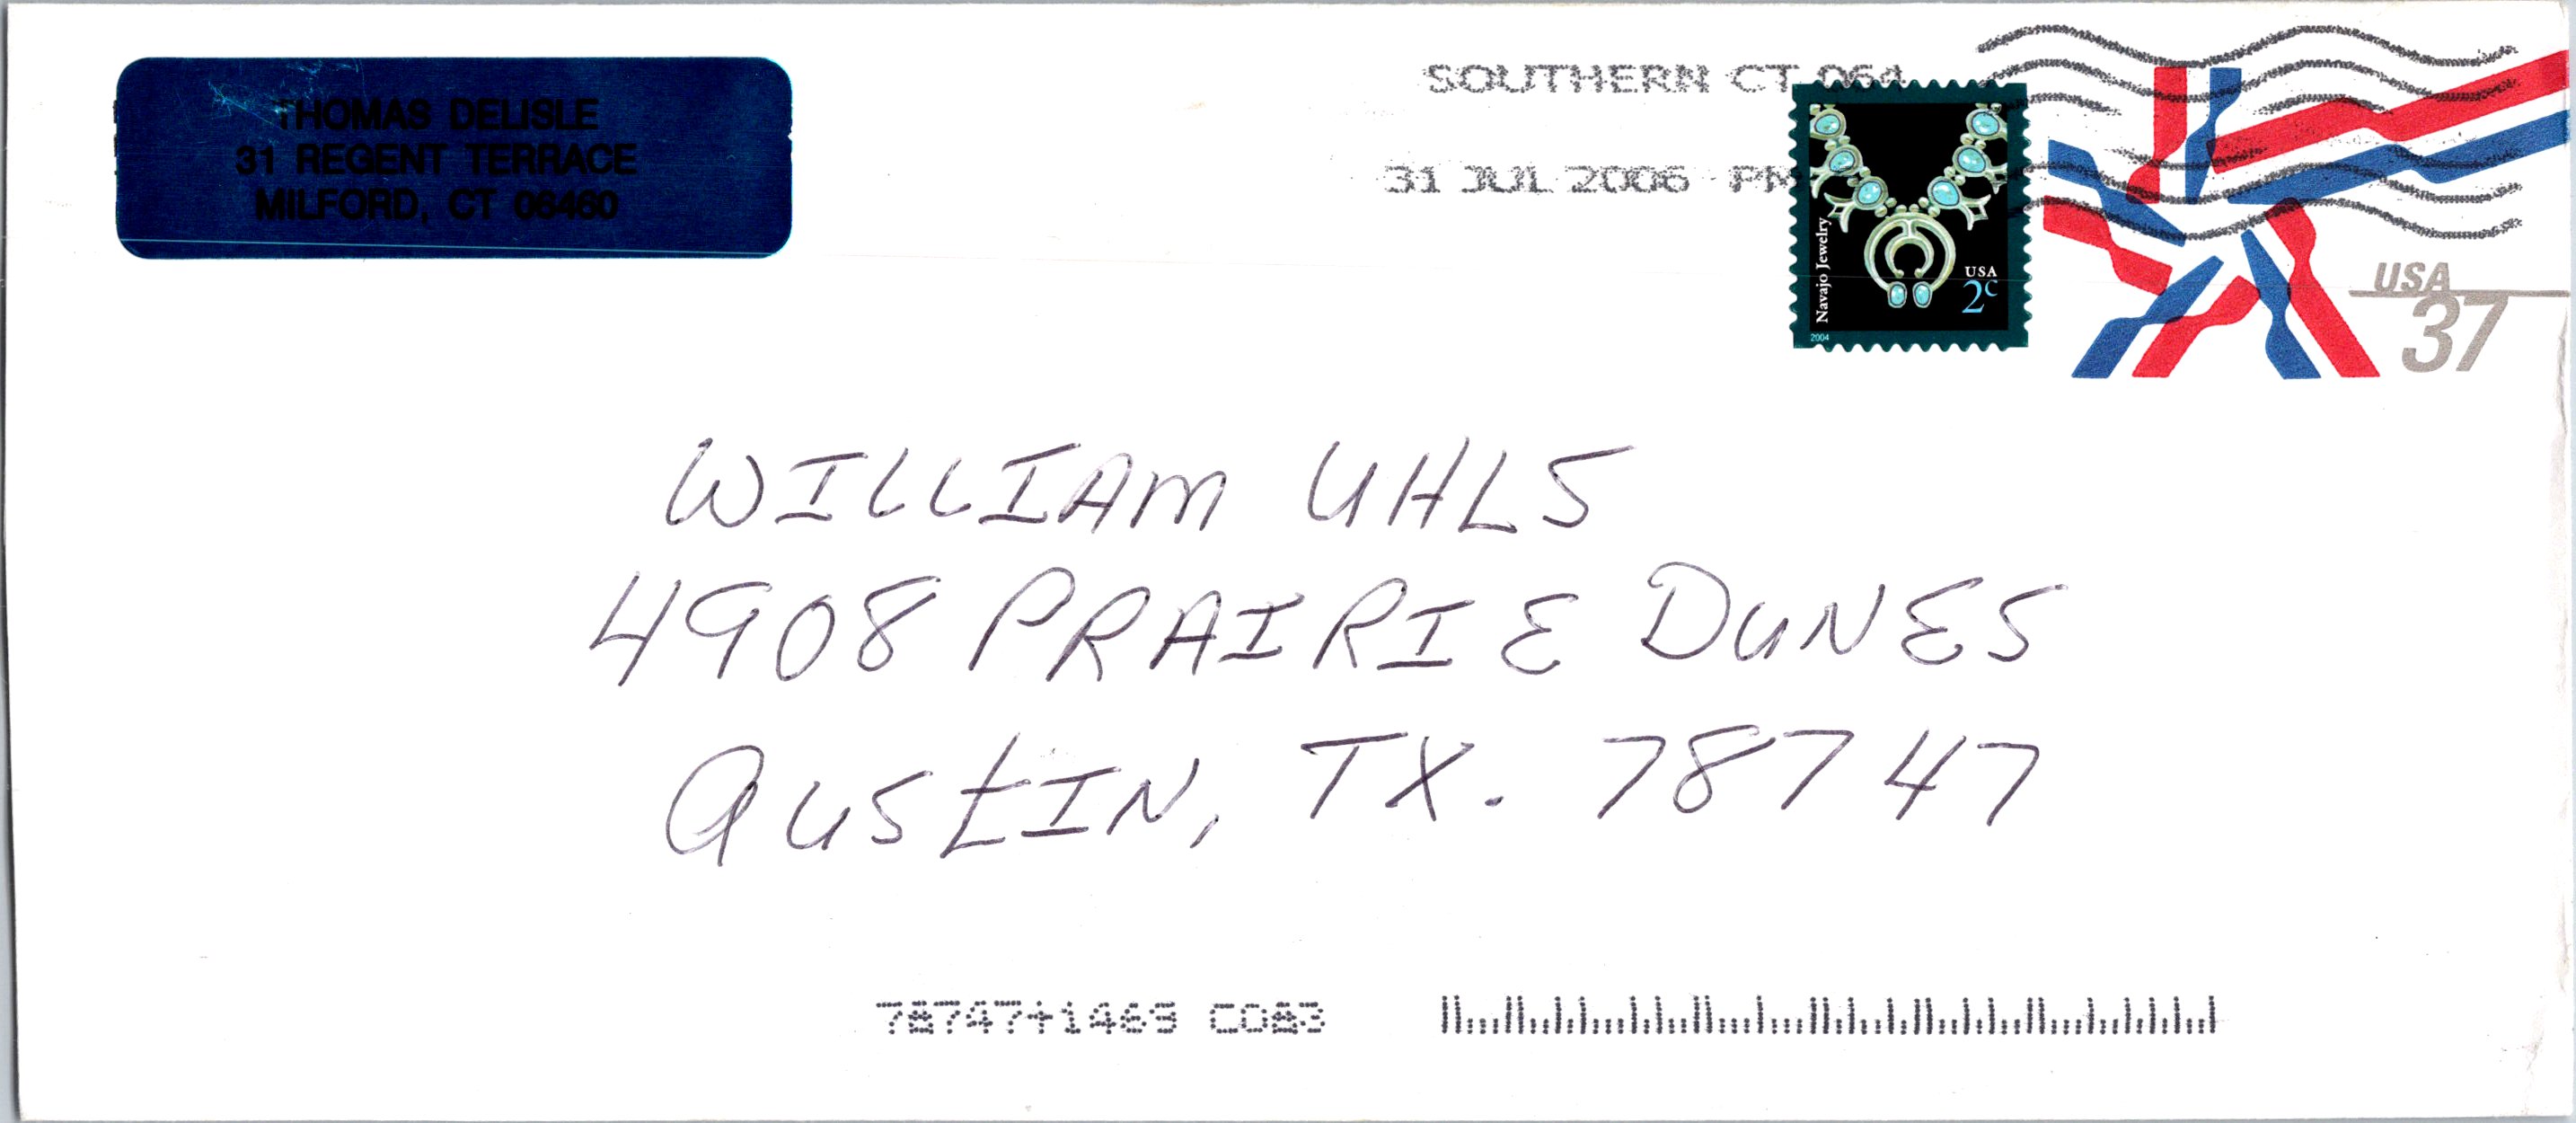 THOMAS DELISLE
31 REGENT TERRACE
MILFORD, CT 06460
SOUTHERN CT 064
31 JUL 2006 PM
Navajo Jewelry
USA
2c
2004
USA
37
WILLIAM UHLS
4908 PRAIRIE DUNES
AUSTIN, TX. 78747
78747+1469 C083